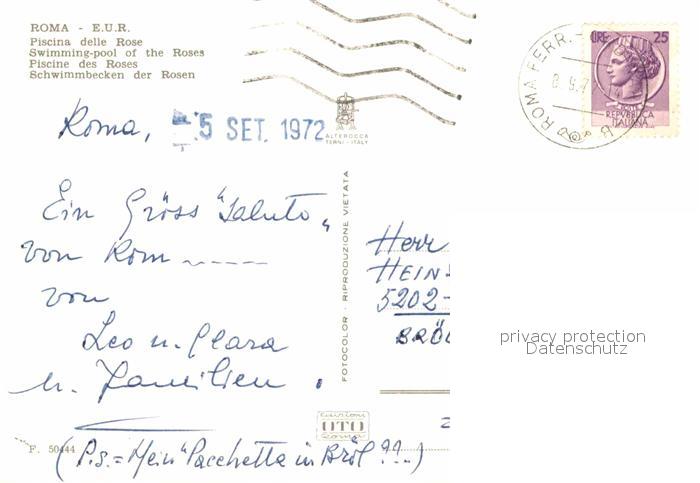 ROMA - E.U.R.
Piscina delle Rose
Swimming-pool of the Roses
Piscine des Roses
Schwimmbecken der Rosen
LIRE 25
REPVBBLICA
ITALIANA
ROMA FERR.
Roma, -5 SET. 1972
ALTEROCCA
TERNI - ITALY
Ein Gröss "Saluto"
von Rom ----
von
Leo u. Clara
u. Familien.
FOTOCOLOR - RIPRODUZIONE VIETATA
Herr
HEIN
5202-
BRÖL
privacy protection
Datenschutz
EDIZIONI
OTO
ROMA
F. 50444
(P.s. = Mein "Pacchetta in Bröl ??...)